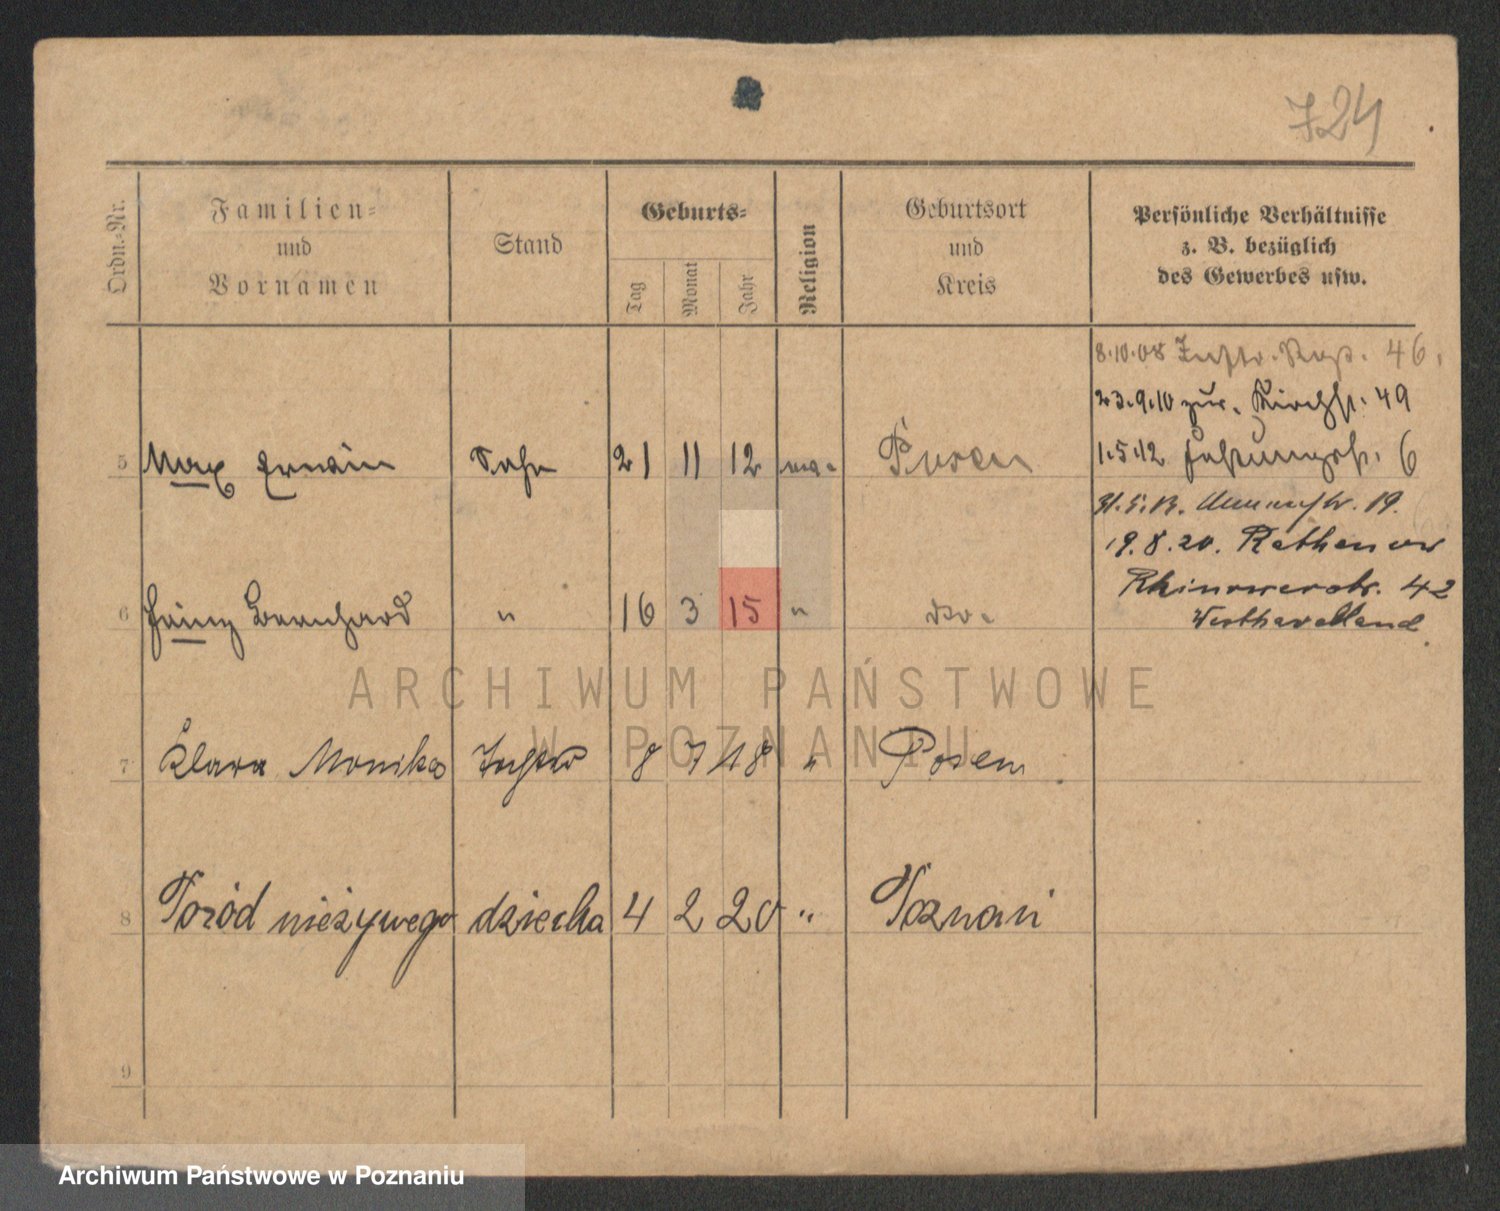 724
Ordn.-Nr.
Familien-
und
Vornamen
Stand
Geburts-
Tag
Monat
Jahr
Religion
Geburtsort
und
Kreis
Persönliche Verhältnisse
z. B. bezüglich
des Gewerbes usw.
8.10.08 46.
23.9.10 zur. Kirchstr. 49
1.5.12 6
19.
19.8.20. Rathenow
Rhinowerstr. 42
Westhavelland
5 Max Erwin Sohn 21 11 12 Posen
6 Heinz Bernhard " 16 3 15 " do.
7 Klara Monika Tochter 8 7 18 " Posen
8 Poród nieżywego dziecka 4 2 20 " Poznań
9
ARCHIWUM PAŃSTWOWE
W POZNANIU
Archiwum Państwowe w Poznaniu